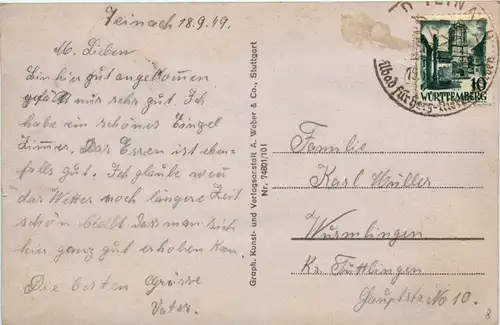 Teinach 18.9.49.
M. Lieben
Bin hier gut angekommen
gefällt mir sehr gut. Ich
habe ein schönes Einzel
Zimmer. Das Essen ist eben-
falls gut. Ich glaube wen
das Wetter noch längere Zeit
schön bleibt das man sich
hier ganz gut erholen kan.
Die besten Grüsse
Vater.
Graph. Kunst- und Verlagsanstalt A. Weber & Co., Stuttgart
Nr. 74801/101
10
WÜRTTEMBERG
Familie
Karl Müller
Wurmlingen
Kr. Tuttlingen
Hauptstr No 10.